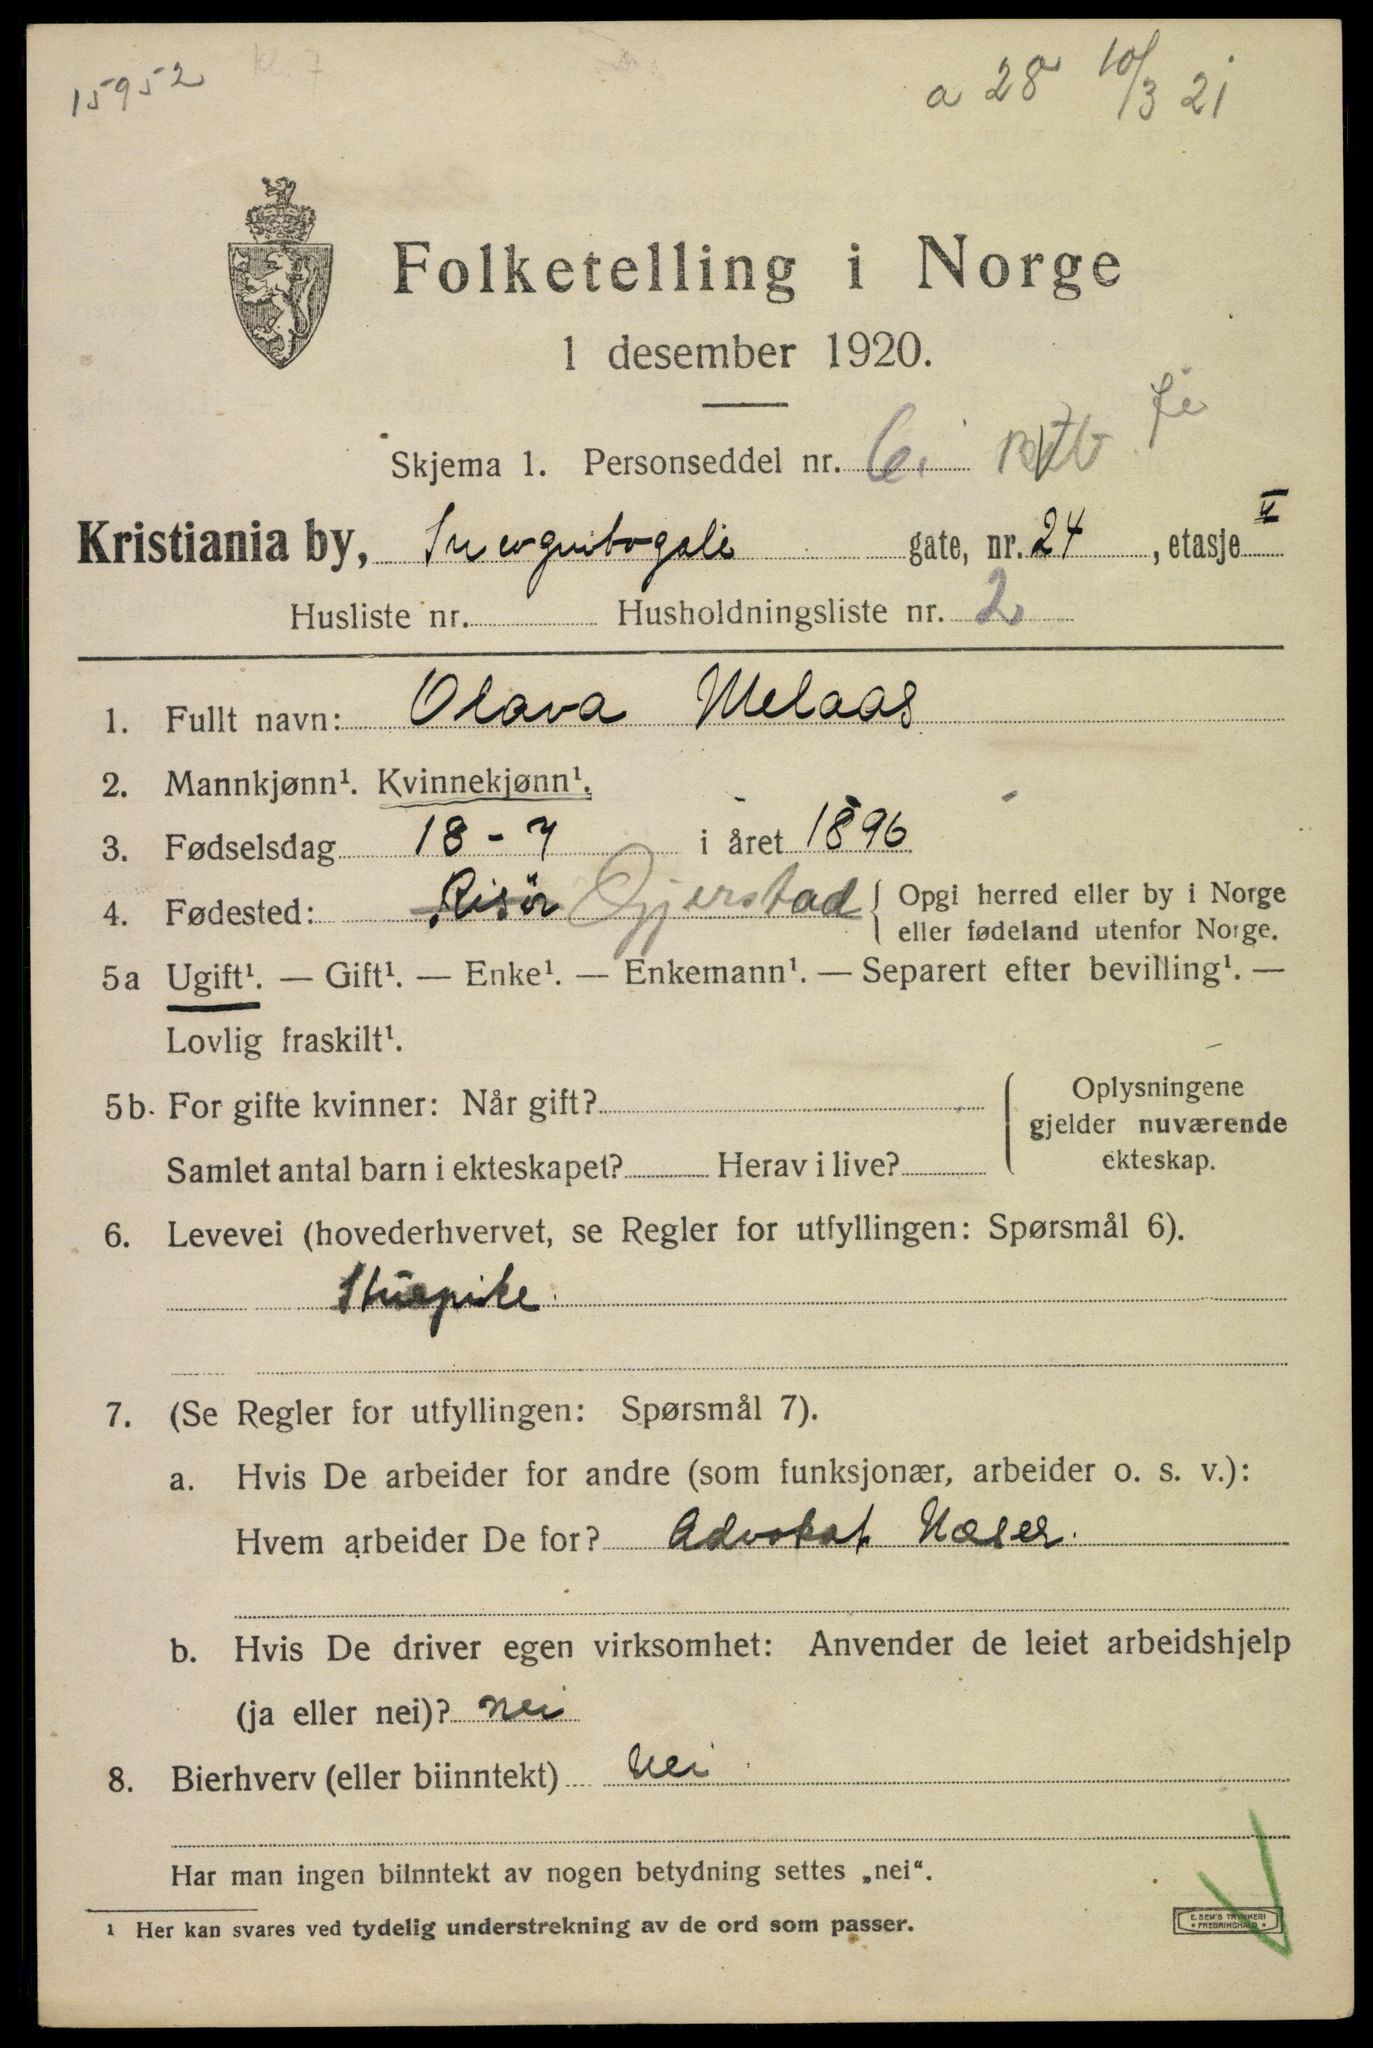 15952
a 28 10/3 21
Folketelling i Norge
1 desember 1920.
Skjema 1. Personseddel nr. 6.
Kristiania by, gate, nr. 24, etasje II
Husliste nr. Husholdningsliste nr. 2
1. Fullt navn: Olava Melaas
2. Mannkjønn¹. Kvinnekjønn¹.
3. Fødselsdag 18-7 i året 1896
4. Fødested: Risør Gjerstad { Opgi herred eller by i Norge
eller fødeland utenfor Norge.
5a Ugift¹. — Gift¹. — Enke¹. — Enkemann¹. — Separert efter bevilling¹. —
Lovlig fraskilt¹.
5b. For gifte kvinner: Når gift?
Samlet antal barn i ekteskapet? Herav i live?
{ Oplysningene
gjelder nuværende
ekteskap.
6. Levevei (hovederhvervet, se Regler for utfyllingen: Spørsmål 6).
Stuepike.
7. (Se Regler for utfyllingen: Spørsmål 7).
a. Hvis De arbeider for andre (som funksjonær, arbeider o. s. v.):
Hvem arbeider De for? Advokat Næser.
b. Hvis De driver egen virksomhet: Anvender de leiet arbeidshjelp
(ja eller nei)? nei
8. Bierhverv (eller biinntekt) Nei
Har man ingen biinntekt av nogen betydning settes „nei“.
¹ Her kan svares ved tydelig understrekning av de ord som passer.
E. SEM'S TRYKKERI
* FREDRIKSHALD *